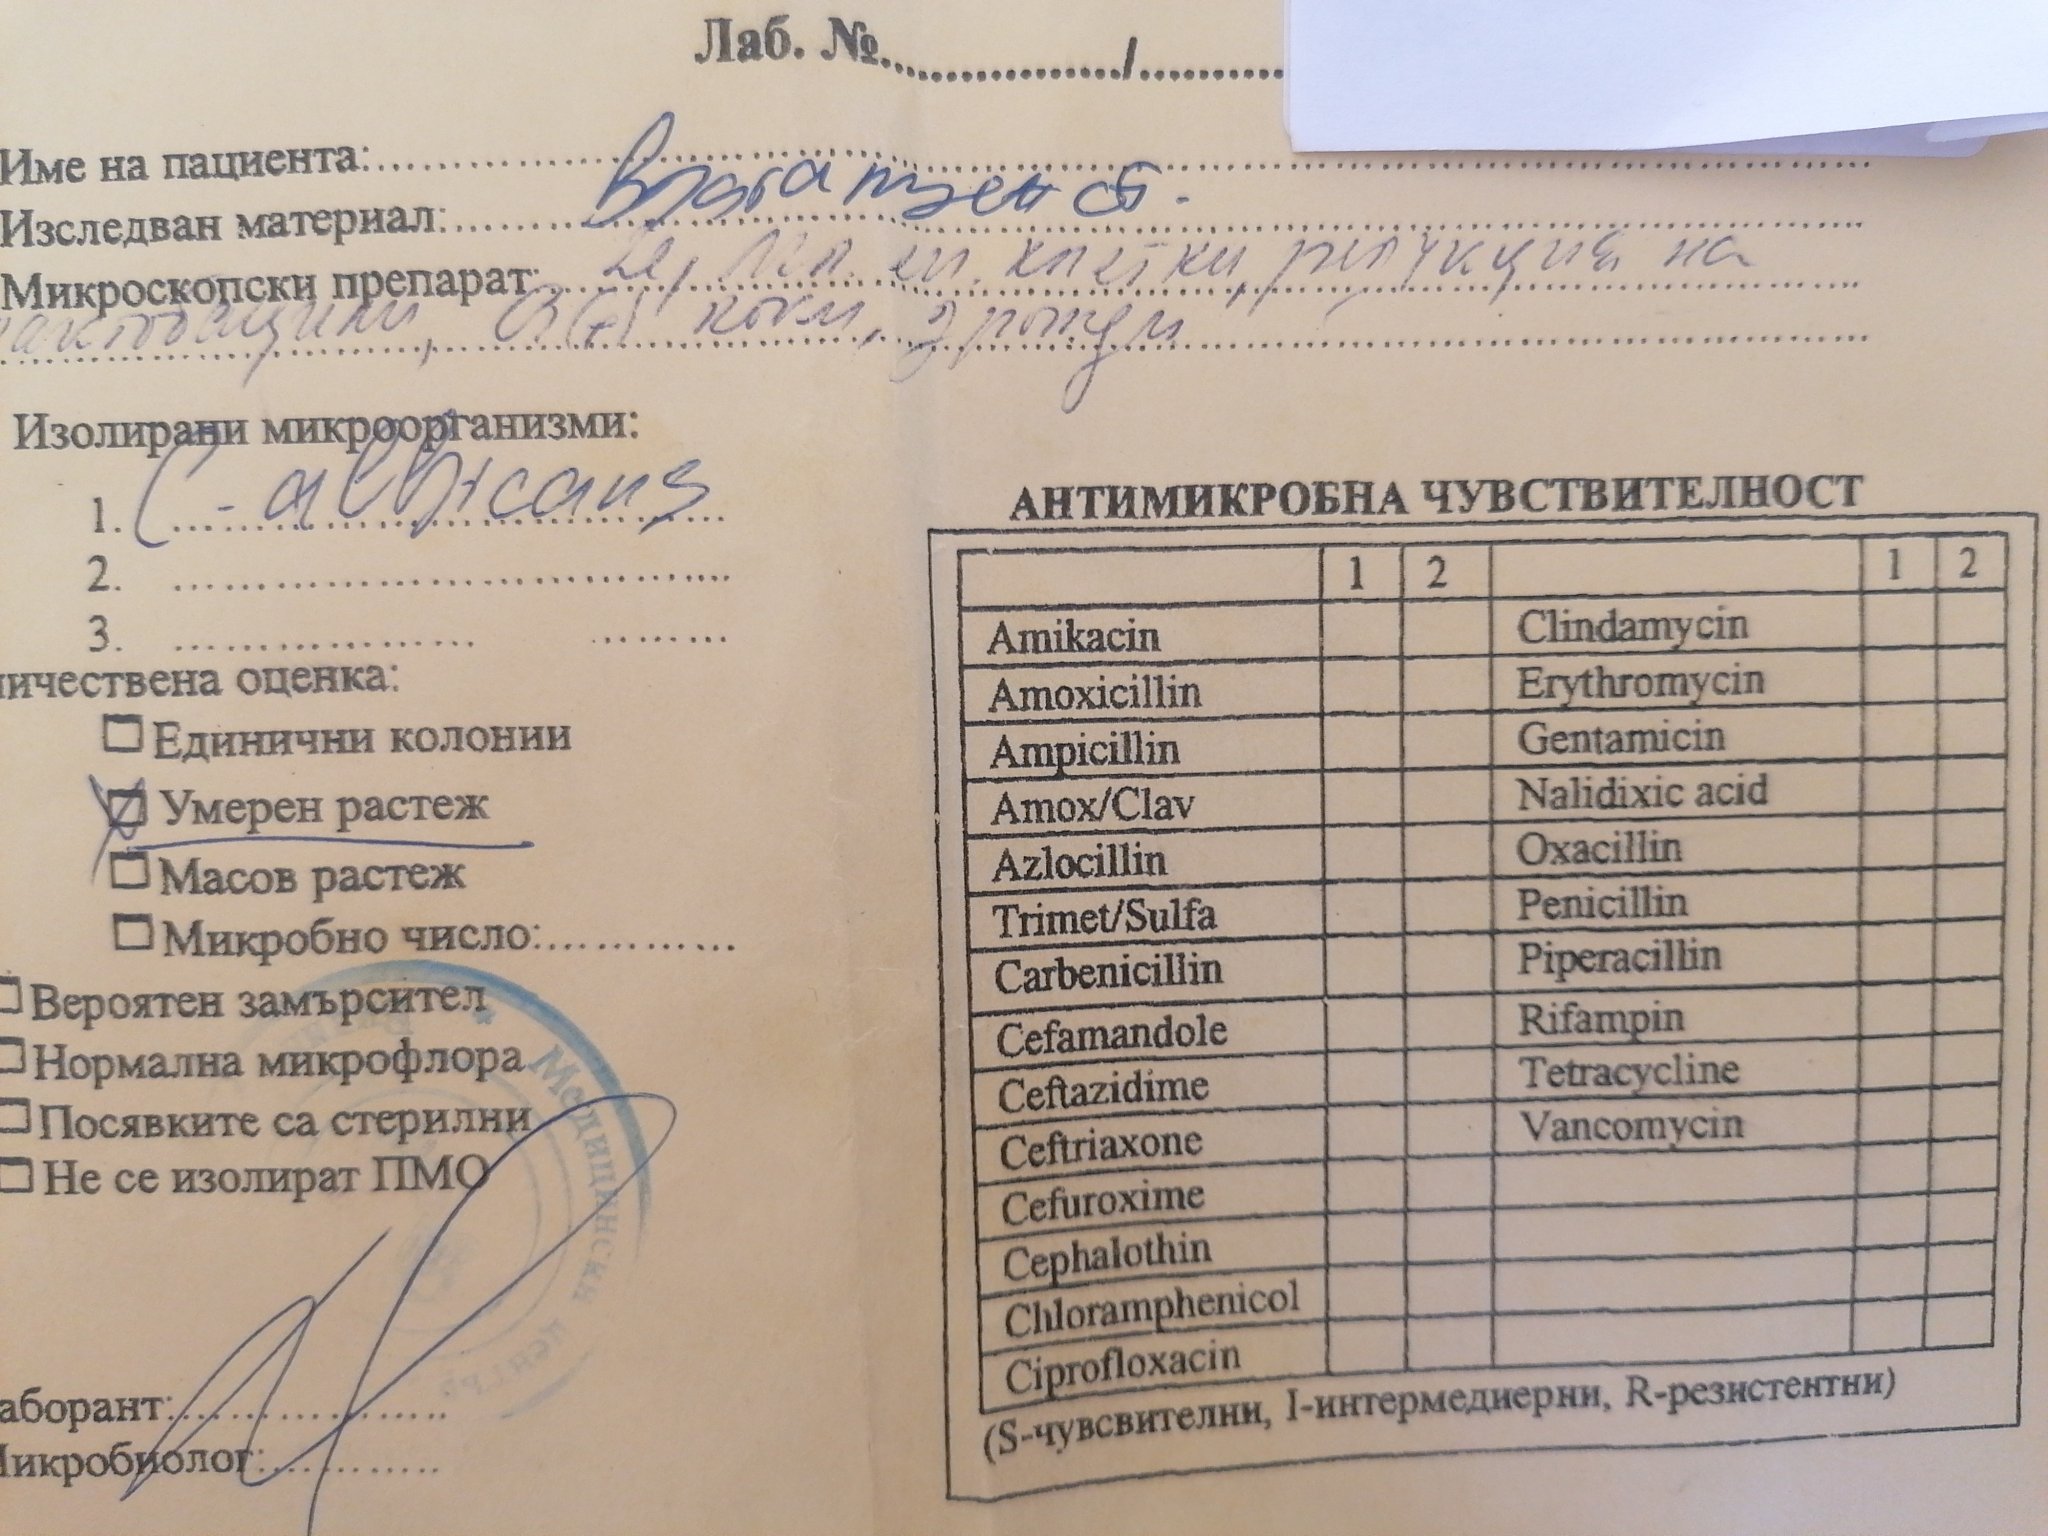 Лаб. №................../............
Име на пациента:
Изследван материал: Влагал. секрет.
Микроскопски препарат: Le, еп. клетки, редукция на
лактобацили, Гр(+) коки, дрожди
Изолирани микроорганизми:
1. C. albicans
2. ....................................
3. ....................................
ичествена оценка:
Единични колонии
Умерен растеж
Масов растеж
Микробно число:............
Вероятен замърсител
Нормална микрофлора
Посявките са стерилни
Не се изолират ПМО
Медицински
аборант:..................
икробиолог:............
АНТИМИКРОБНА ЧУВСТВИТЕЛНОСТ
1 2 1 2
Amikacin Clindamycin
Amoxicillin Erythromycin
Ampicillin Gentamicin
Amox/Clav Nalidixic acid
Azlocillin Oxacillin
Trimet/Sulfa Penicillin
Carbenicillin Piperacillin
Cefamandole Rifampin
Ceftazidime Tetracycline
Ceftriaxone Vancomycin
Cefuroxime
Cephalothin
Chloramphenicol
Ciprofloxacin
(S-чувсвителни, I-интермедиерни, R-резистентни)